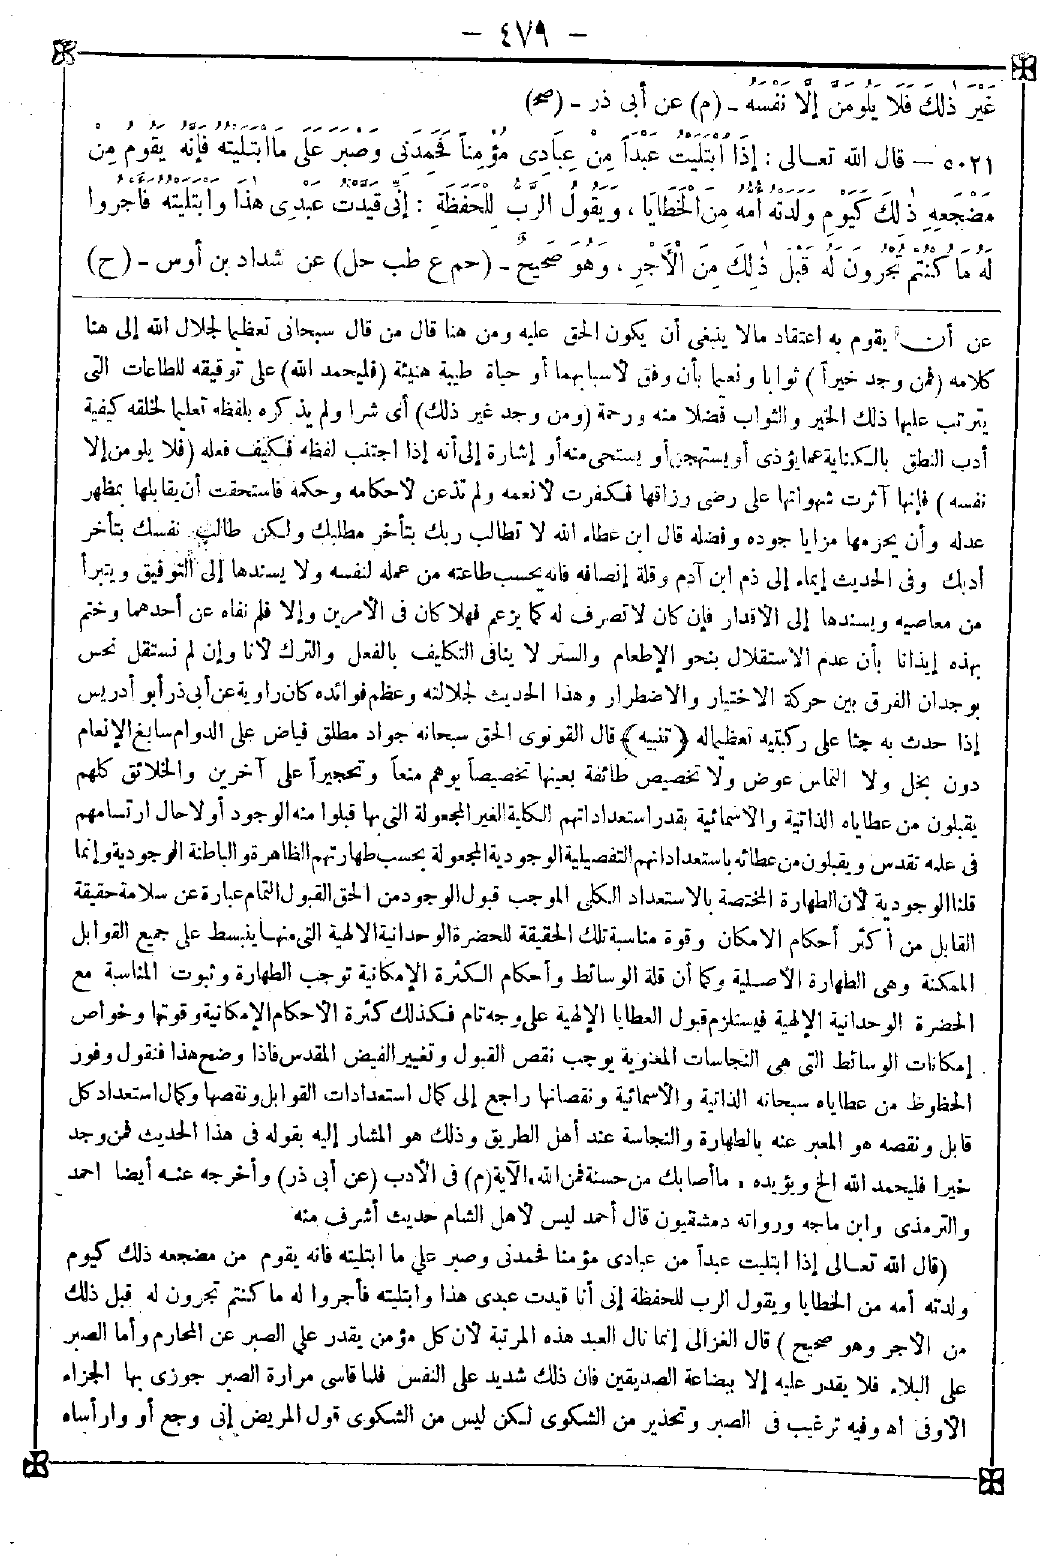 - ٤٧٩ -
غَيْرَ ذٰلِكَ فَلَا يَلُومَنَّ إِلَّا نَفْسَهُ - (م) عن أبى ذر - (صح)
٥٠٢١ - قال الله تعـالى : إِذَا ابْتَلَيْتُ عَبْدًا مِنْ عِبَادِى مُؤْمِناً فَحَمِدَنِى وَصَبَرَ عَلَى مَا ابْتَلَيْتُهُ فَإِنَّهُ يَقُومُ مِنْ
مَضْجَعِهِ ذٰلِكَ كَيَوْمِ وَلَدَتْهُ أُمُّهُ مِنَ الْخَطَايَا ، وَيَقُولُ الرَّبُّ لِلْحَفَظَةِ : إِنِّى قَيَّدْتُ عَبْدِى هٰذَا وَابْتَلَيْتُهُ فَأَجْرُوا
لَهُ مَا كُنْتُمْ تُجْرُونَ لَهُ قَبْلَ ذٰلِكَ مِنَ الْأَجْرِ ، وَهُوَ صَحِيحٌ - (حم ع طب حل) عن شداد بن أوس - (ح)
عن أن يقوم به اعتقاد مالا ينبغى أن يكون الحق عليه ومن هنا قال من قال سبحانى تعظيما لجلال الله إلى هنا
كلامه (فمن وجد خيراً) ثوابا ونعيما بأن وفق لأسبابهما أو حياة طيبة هنيئة (فليحمد الله) على توفيقه للطاعات التى
يترتب عليها ذلك الخير والثواب فضلا منه ورحمة (ومن وجد غير ذلك) أى شرا ولم يذكره بلفظه تعليما لخلقه كيفية
أدب النطق بالكناية عما يؤذى أو يستهجن أو يستحى منه أو إشارة إلى أنه إذا اجتنب لفظه فكيف فعله (فلا يلومن إلا
نفسه) فإنها آثرت شهواتها على رضى رزاقها فكفرت لأنعمه ولم تذعن لأحكامه وحكمه فاستحقت أن يقابلها بمظهر
عدله وأن يحرمها مزايا جوده وفضله قال ابن عطاء الله لا تطالب ربك بتأخر مطلبك ولكن طالب نفسك بتأخر
أدبك وفى الحديث إيماء إلى ذم ابن آدم وقلة إنصافه فانه يحسب طاعته من عمله لنفسه ولا يسندها إلى التوفيق ويتبرأ
من معاصيه ويسندها إلى الأقدار فإن كان لا تصرف له كما يزعم فهلا كان فى الأمرين وإلا فلم نفاه عن أحدهما وختم
بهذه إيذانا بأن عدم الاستقلال بنحو الإطعام والستر لا ينافى التكليف بالفعل والترك لأنا وإن لم نستقل نحس
بوجدان الفرق بين حركة الاختيار والاضطرار وهذا الحديث لجلالته وعظم فوائده كان راوية عن أبى ذر أبو أدريس
إذا حدث به جثا على ركبتيه تعظيما له (تنبيه) قال القونوى الحق سبحانه جواد مطلق فياض على الدوام سابغ الإنعام
دون بخل ولا التماس عوض ولا تخصيص طائفة بعينها تخصيصاً يوهم منعاً وتحجيراً على آخرين والخلائق كلهم
يقبلون من عطاياه الذاتية والأسمائية بقدر استعداداتهم الكلية الغير المجعولة التى بها قبلوا منه الوجود أولا حال ارتسامهم
فى علمه تقدس ويقبلون من عطائه باستعداداتهم التفصيلية الوجودية المجعولة بحسب طهارتهم الظاهرة والباطنة الوجودية وإنما
قلنا الوجودية لأن الطهارة المختصة بالاستعداد الكلى الموجب قبول الوجود من الحق القبول التام عبارة عن سلامة حقيقة
القابل من أكثر أحكام الامكان وقوة مناسبة تلك الحقيقة للحضرة الوحدانية الالهية التى منها ينبسط على جميع القوابل
الممكنة وهى الطهارة الأصلية وكما أن قلة الوسائط وأحكام الكثرة الإمكانية توجب الطهارة وثبوت المناسبة مع
الحضرة الوحدانية الإلهية فيستلزم قبول العطايا الإلهية على وجه تام فكذلك كثرة الأحكام الإمكانية وقوتها وخواص
إمكانات الوسائط التى هى النجاسات المعنوية يوجب نقص القبول وتغيير الفيض المقدس فاذا وضح هذا فنقول وفور
الحظوظ من عطاياه سبحانه الذاتية والأسمائية ونقصانها راجع إلى كمال استعدادات القوابل ونقصها وكمال استعداد كل
قابل ونقصه هو المعبر عنه بالطهارة والنجاسة عند أهل الطريق وذلك هو المشار إليه بقوله فى هذا الحديث فمن وجد
خيرا فليحمد الله الخ ويؤيده ، ما أصابك من حسنة فمن الله ، الآية (م) فى الأدب (عن أبى ذر) وأخرجه عنه أيضا احمد
والترمذى وابن ماجه ورواته دمشقيون قال أحمد ليس لأهل الشام حديث أشرف منه
(قال الله تعـالى إذا ابتليت عبداً من عبادى مؤمنا فحمدنى وصبر على ما ابتليته فانه يقوم من مضجعه ذلك كيوم
ولدته أمه من الخطايا ويقول الرب للحفظة إنى أنا قيدت عبدى هذا وابتليته فأجروا له ما كنتم تجرون له قبل ذلك
من الأجر وهو صحيح) قال الغزالى إنما نال العبد هذه المرتبة لأن كل مؤمن يقدر على الصبر عن المحارم وأما الصبر
على البلاء فلا يقدر عليه إلا ببضاعة الصديقين فان ذلك شديد على النفس فلما قاسى مرارة الصبر جوزى بها الجزاء
الأوفى اه وفيه ترغيب فى الصبر وتحذير من الشكوى لكن ليس من الشكوى قول المريض إنى وجع أو وارأساه